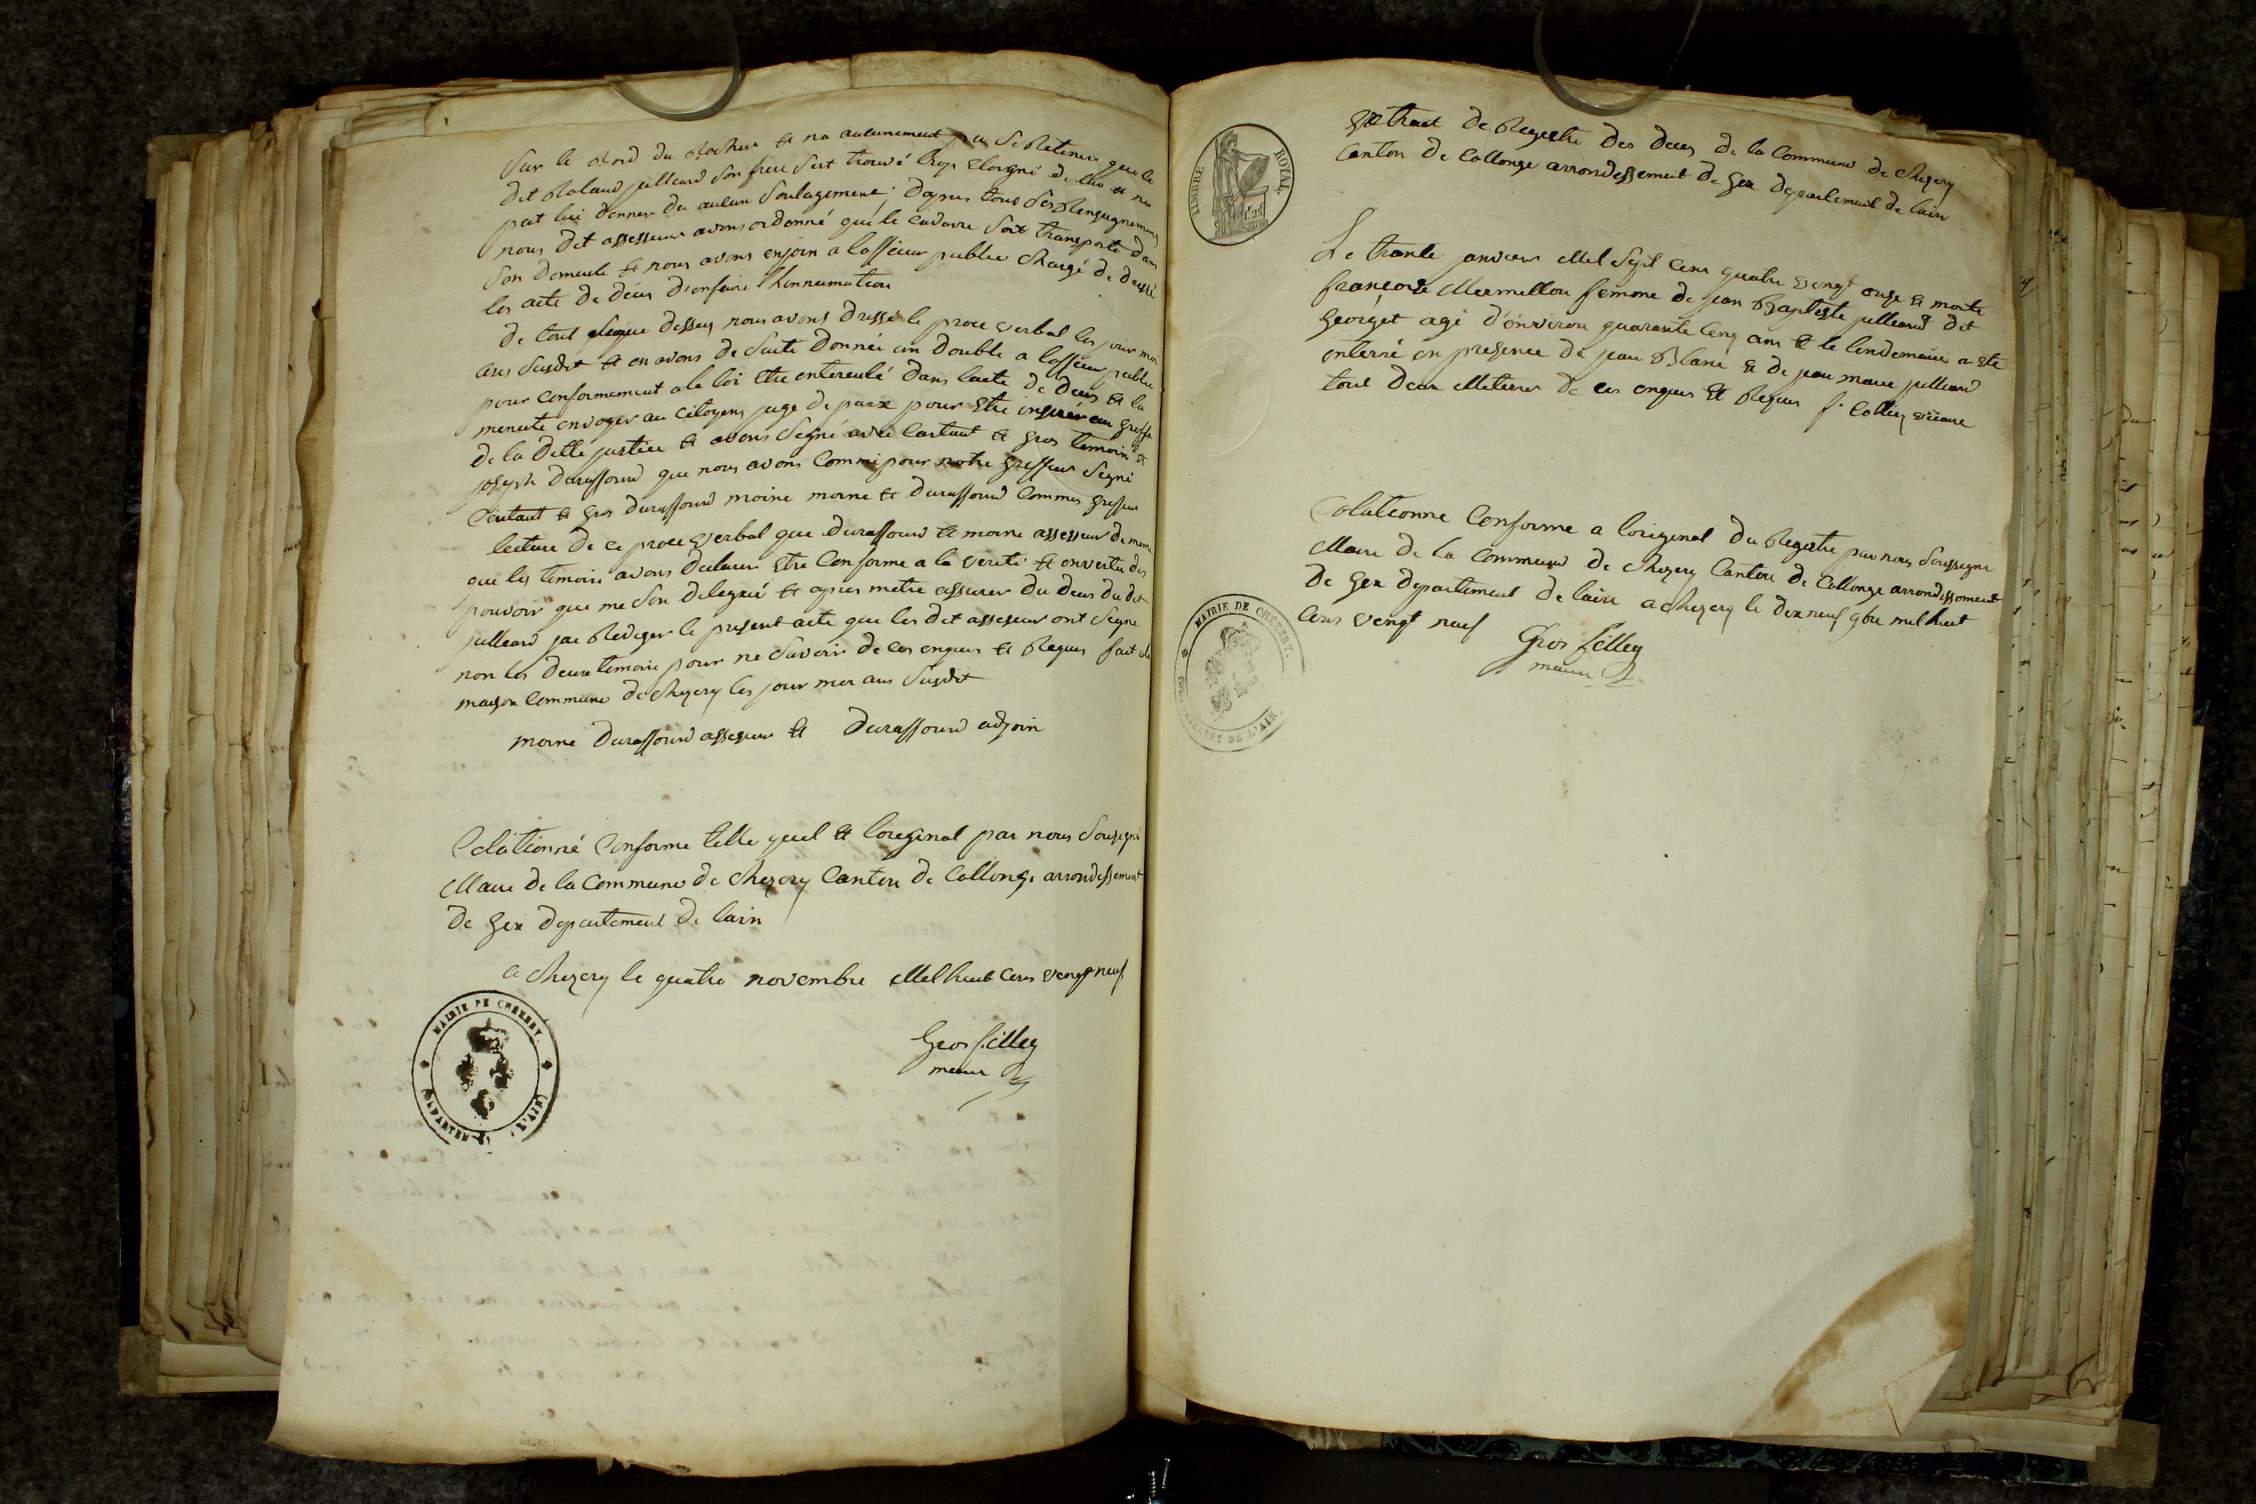 Sur le bord du Rocher et na aucunement pu se Retenir que le
dit Roland julliard son frere soit trouvé trop Eloigné de lui et na
put lui donner du aucun soulagement; dapres tous ses Rensegnement
nous dit assesseur avons ordonné que le cadavre soit transporté dans
son domicile et nous avons enjoin a lofficier public chargé de dressé
les acte de déces d'enfaire linnumation
de tout dessus nous avons dressé le proce verbal les jour moi
ans susdit et en avons de suite donner un double a lofficier public
pour conformement a la loi etre enterculé dans lacte de déces et la
menute envoyer au citoyens juge de paix pour etre insserér au greffe
de la dette justice et avons segné avec lartaut et gros temoin et
joseph durassourd que nous avons commi pour notre greffier Segné
et gros durassourd moine moine et durassourd commis greffier
lecture de ce proce verbal que durassourd et moine assesseur de meme
que les temoin avons declarer etre conforme a la verité et envertu des
pouvoir que me son delegué et apres metre assurer du deces du dit
julliard jai Rediger le present acte que les dit assesseur ont Segné
non les deux temoin pour ne savoir de ces enquis et Requis fait a la
maison commune de chezery les jour moi ans susdit
moine durassourd assesseur et durassourd adjoin
Colationné Conforme telle quel et loreginal par nous sousegné
Maire de la Commune de chezery Canton de Collonge arrondessement
de gex departement de lain
a chezery le quatre novembre Mel huit cens vengt neuf
Grosfilley
maire
MAIRIE DE CHEZERY.
DEPARTEM L'AIN
TIMBRE ROYAL
Extrait de Regestre des deces de la Commune de Chezery
Canton de Collonge arrondessement de gex departement de lain
Le trante janvier Mel Sept cens quatre vengt onze et morte
françoise Mermillon femme de jean Baptiste julliard dit
georget agé d'environ quarante cenq ans et le lendemain a eté
enterré en presence de jean Blanc et de jean marie julliard
tous deux elletteres de ces enquis et Requis f. Collin vicaire
Colationne Conforme a loriginal du Regestre par nous soussegne
Maire de la Commune de chezery Canton de Collonge arrondissement
de gex departement de lain a chezery le dixneuf 9bre mil huit
cens vengt neuf
Gros filley
maire
MAIRIE DE CHEZERY.
DEPARTEMENT DE L'AIN.